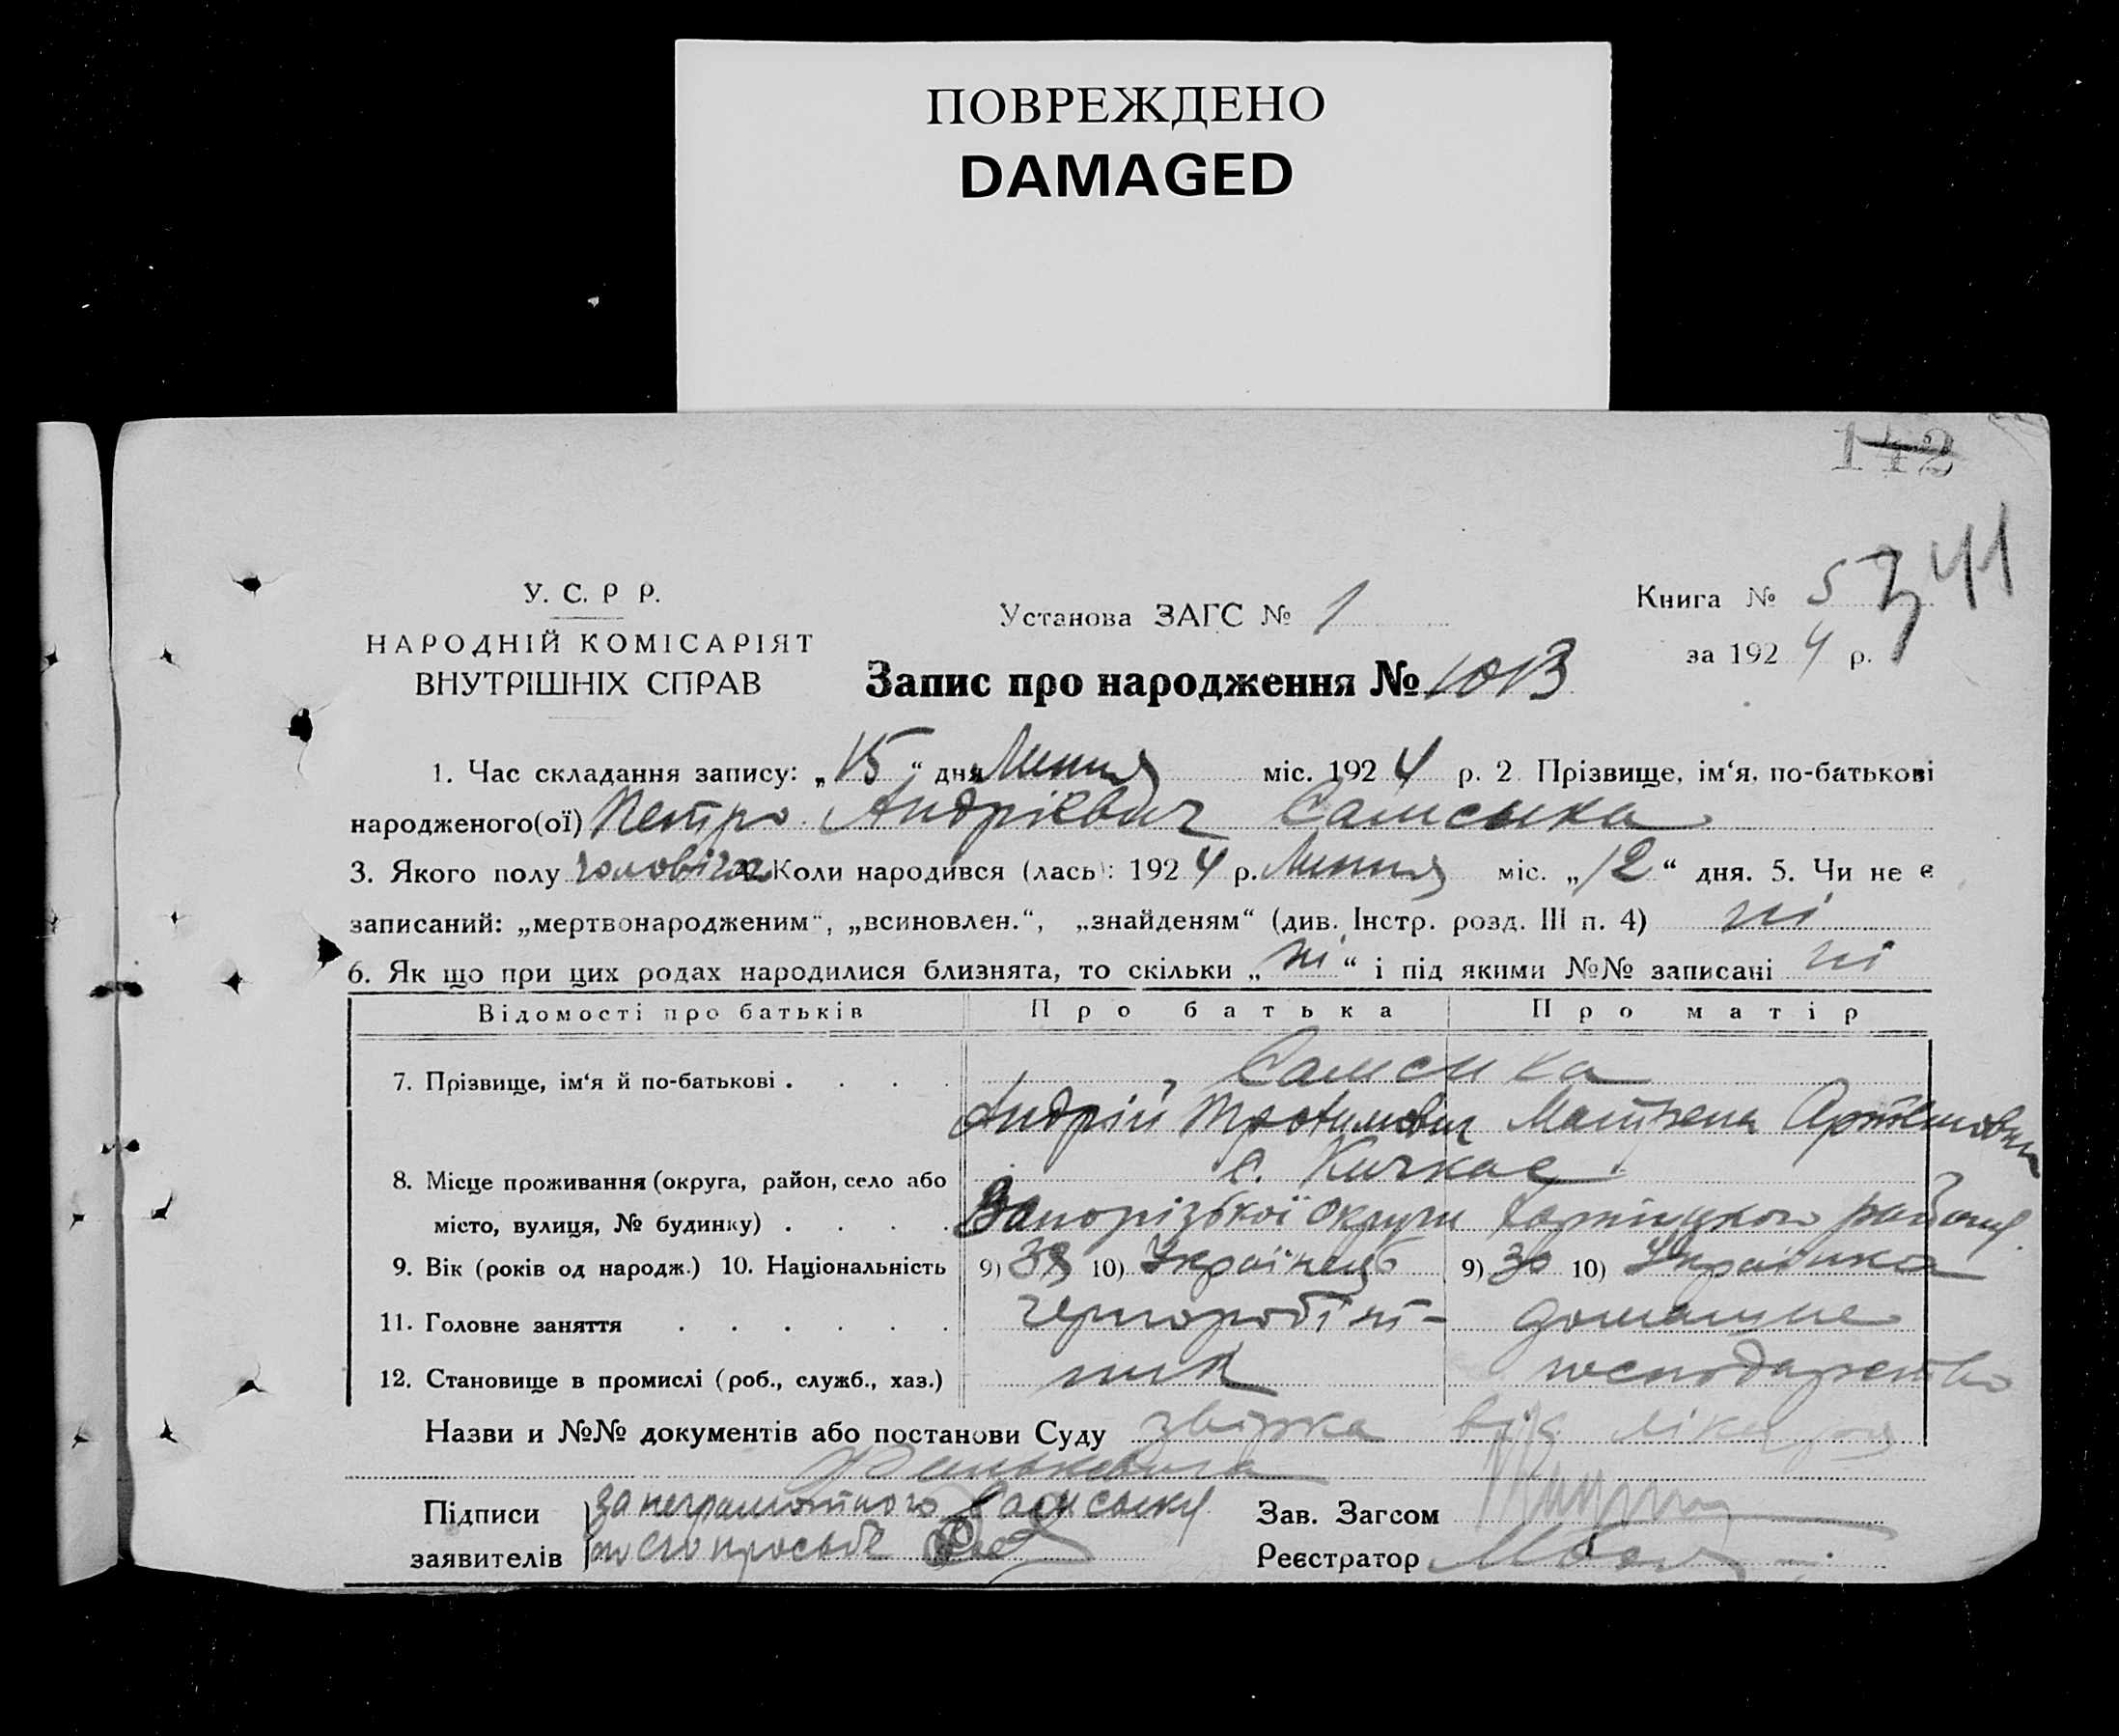 ПОВРЕЖДЕНО
DAMAGED
142
41
У. С. Р Р.
НАРОДНІЙ КОМІСАРІЯТ
ВНУТРІШНІХ СПРАВ
Установа ЗАГС № 1
Книга № 5
за 1924 р.
Запис про народження № 1013
1. Час складання запису: „15“ дня Липня міс. 1924 р. 2 Прізвище, ім‘я, по-батькові
народженого(ої) Петро Андрієвич Самсика
3. Якого полу чоловічого 4. Коли народився (лась): 1924 р. Липня міс. „12“ дня. 5. Чи не є
записаний: „мертвонародженим“, „всиновлен.“, „знайденям“ (див. Інстр. розд. III п. 4) ні
6. Як що при цих родах народилися близнята, то скільки „ні“ і під якими №№ записані ні
Відомості про батьків Про батька Про матір
7. Прізвище, ім‘я й по-батькові . . . . Самсика
Андрій Трохимович Мотрена Артемовна
с. Кичкас
8. Місце проживання (округа, район, село або
місто, вулиця, № будинку) . . . . Запорізької округи Хортицького району
9. Вік (років од народж.) 10. Національність 9) 38 10) Українець 9) 30 10) Українка
11. Головне заняття . . . . . . чернороб домашнє
12. Становище в промислі (роб., служб., хаз.) ник господарство
Назви и №№ документів або постанови Суду від лікаря
Підписи за неграмотного Самсику
заявителів по его просьбе
Зав. Загсом
Реєстратор